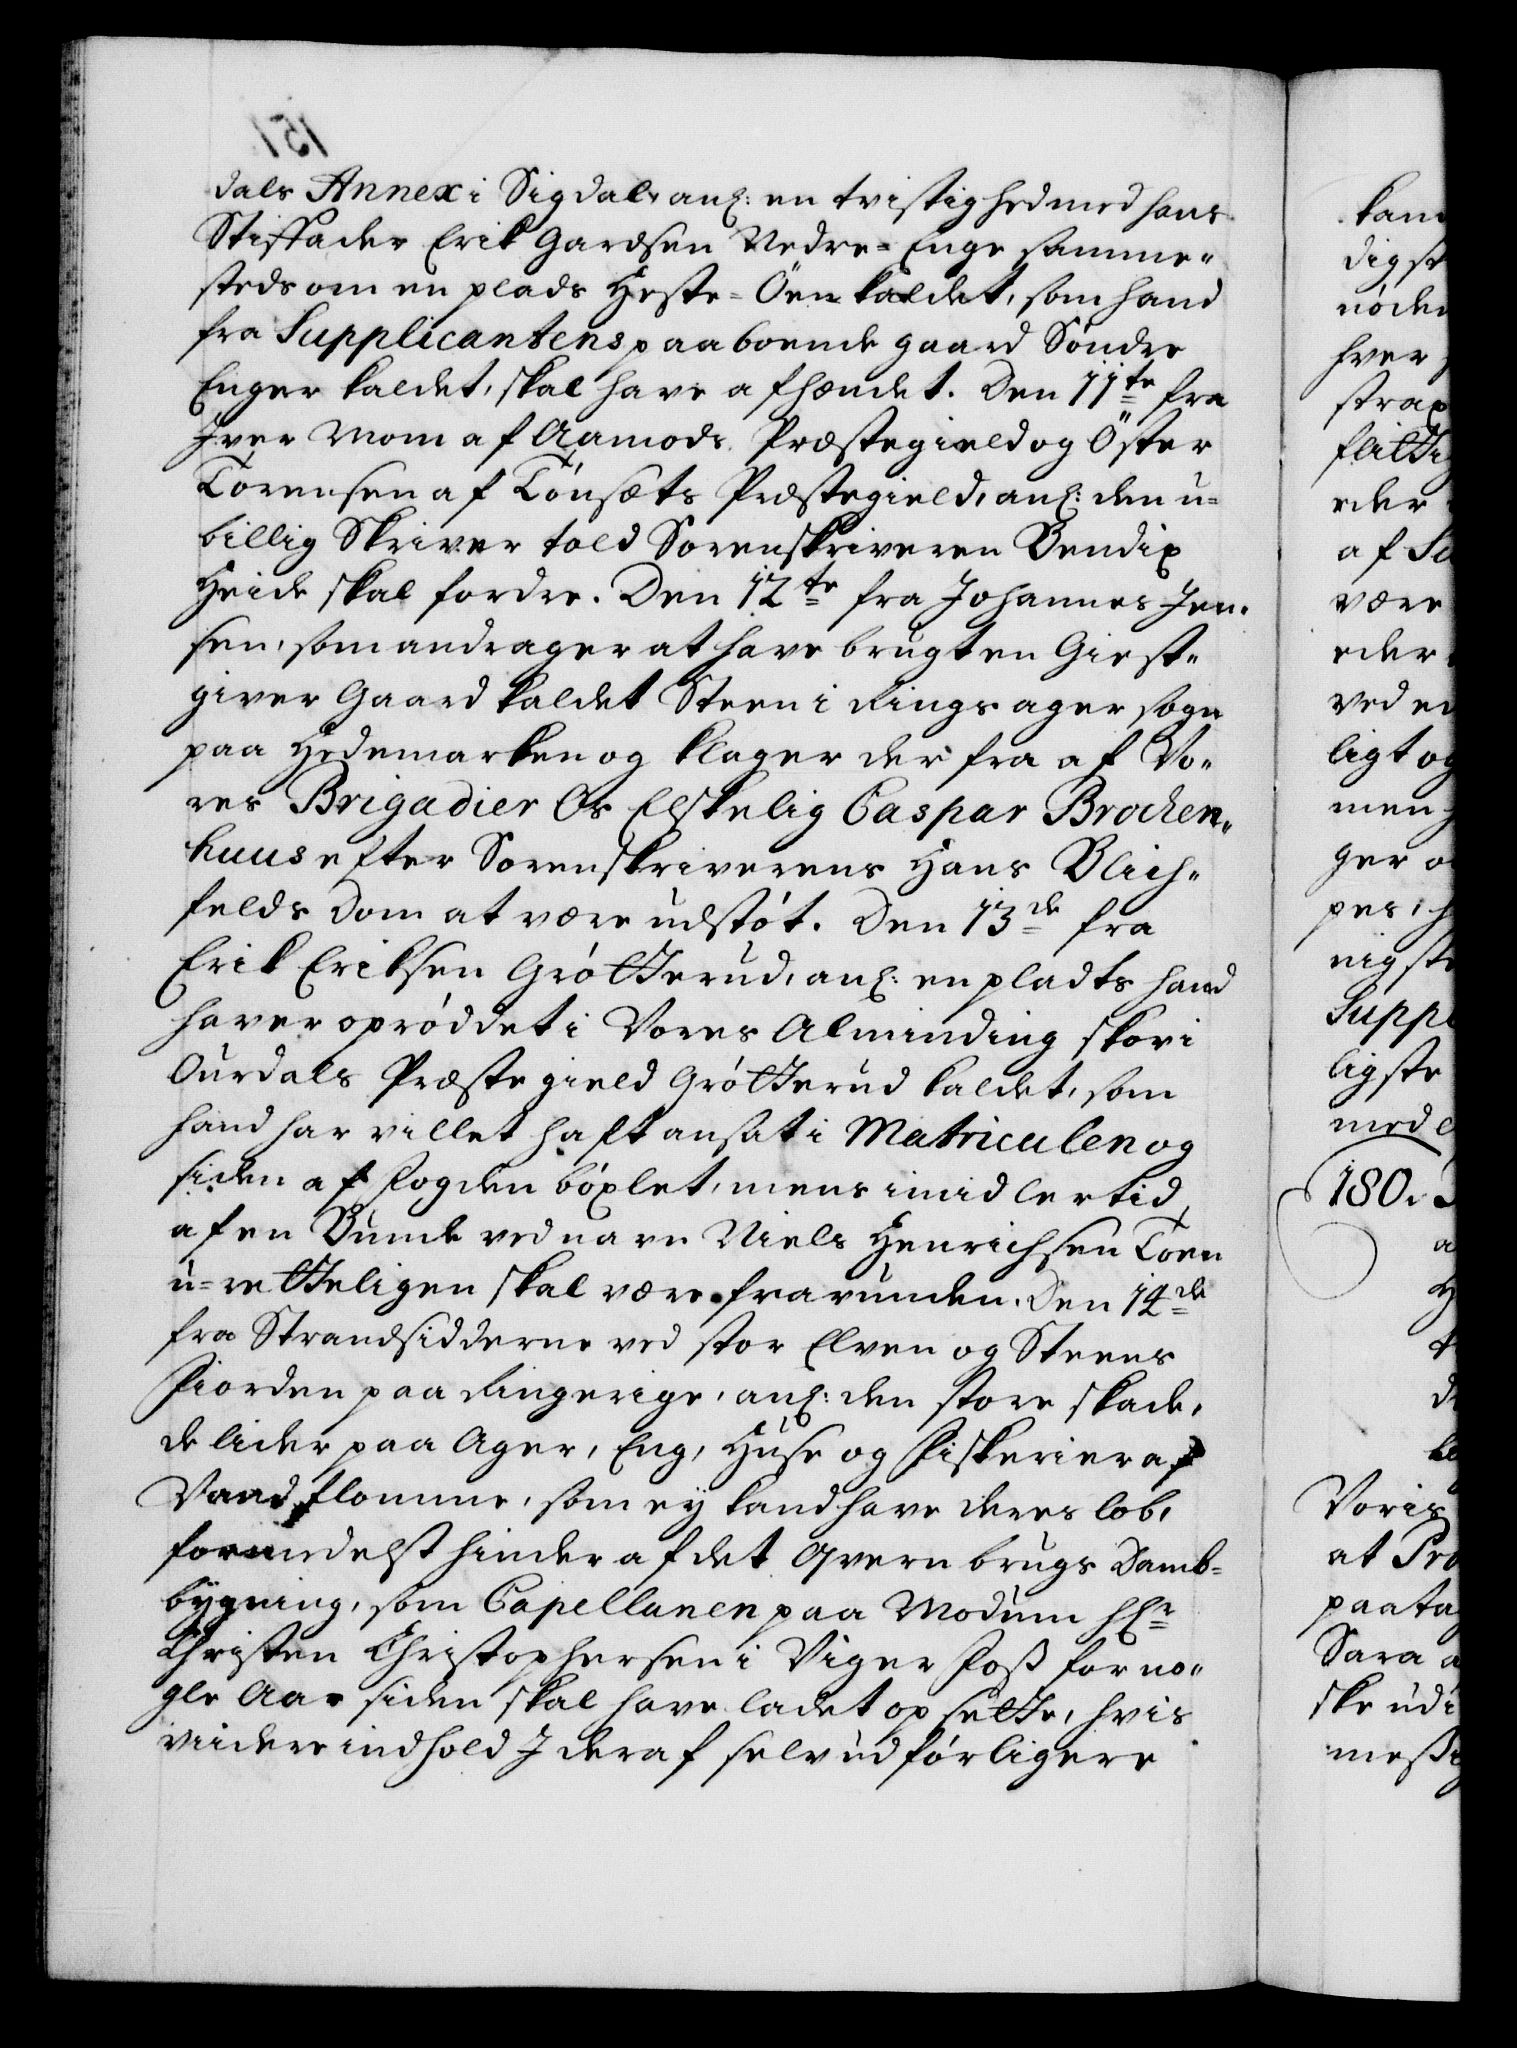 dals Annex i Sigdal, anl: en tvistighed med hans
Stiffader Erik Gardsen Nedre=Enge samme„
steds om en plads Heste=Öen kaldet, som hand
fra Supplicantens paaboende gaard Söndre
Enger kaldet, skal have afhændet. Den 11te fra
Iver Moem af Aamods Præstegield og Öster
Torensen af Tönsæts Præstegield, anl: den u=
billig Skriver told Sorenskriveren Bendix
Heide skal fordre. Den 12te fra Johannes Jen„
sen, som andrager at have brugt en Giest„
giver Gaard kaldet Steen i Ringsager sogn
paa Hedemarken og klager der fra af Vo„
res Brigadier Os Elskelig Caspar Brochen„
huus efter Sorenskriverens Hans Blich„
felds Dom at være udstöt. Den 13de fra
Erik Eriksen Grötterud, anl: en pladts hand
haver oprøddet i Vores Alminding skov i
Ourdals Præstegield Grötterud kaldet, som
hand har villet haft ansat i Matriculen og
siden af Fogden böxlet, mens imidlertid
af en Bunde ved navn Niels Henrichsen Toen
u=retteligen skal være fravunden. Den 14de
fra Strandsidderne ved stor Elven og Steens
Fiorden paa Ringerige, anl: den store skade,
de lider paa Ager, Eng, Huse og Fiskerier af
Vandflomme, som ey kand have deres löb,
formedelst hinder af det Qvern brugs Damb=
bygning, som Capellanen paa Modum Hr
Christen Christophersen i Viger Foss for no„
gle Aar siden skal have ladet opsette, hvis
viidere indhold J deraf selv udførligere
180.